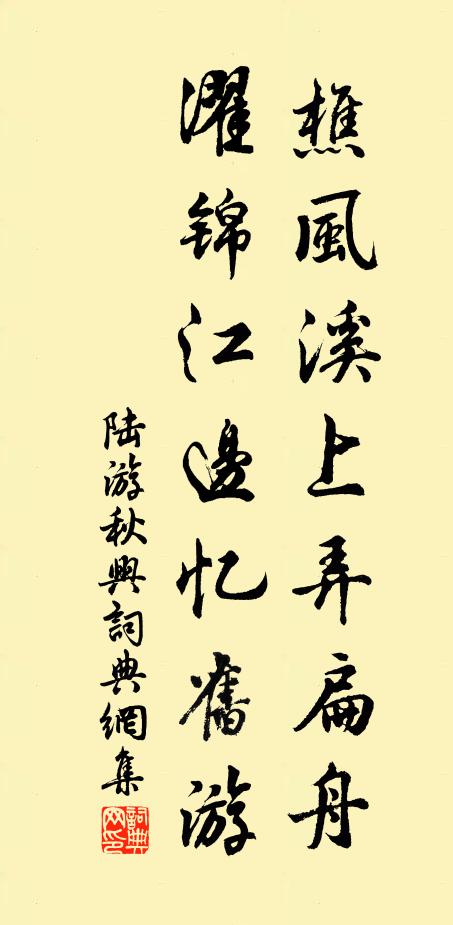 樵風溪上弄扁舟
濯錦江邊忆舊游
陆游秋興詞典網集
詞典网印